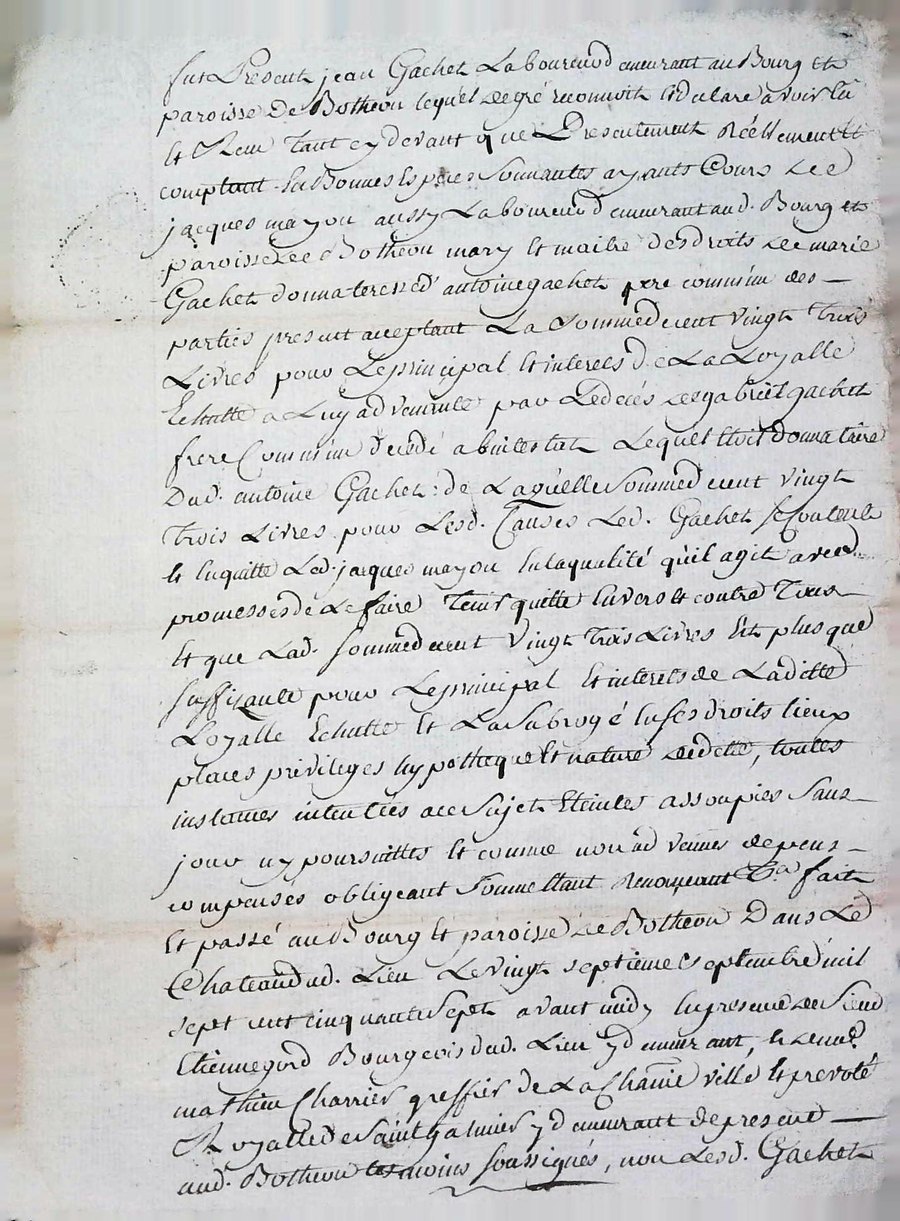 fut Present jean Gachet Laboureur demeurant au Bourg et
paroisse De Botheon lequel de gré reconnoit et declare avoir eû
et Receu tant cydevant que Presentement Réellement et
comptant En Bonnes Especes Sonnantes ayants Cours de
jacques mayou aussy Laboureur demeurant aud. Bourg et
paroisse de Botheon mary et maitre des droits de marie
Gachet donnateresse d'antoine gachet pere commun des
parties present acceptant La Somme de cent vingt trois
Livres pour Le principal et interets de La Loyalle
Echutte a Luy advenüe par Le decés de gabriel gachet
frere Commun decedé abintestat Lequel Etoit donnataire
Dud. antoine Gachet : de Laquelle Somme de cent vingt
trois Livres pour Lesd. Causes Led. Gachet se Contente
et En quitte Led. jacques mayou En la qualité qu'il agit avec
promesses de Le faire tenir quitte Envers et contre tous
et que Lad. somme de cent vingt trois Livres Est plus que
suffizante pour Le principal et interets de Laditte
Loyalle Echutte et L'a Subrogé En ses droits lieux
places privileges hypotheque et nature de dette, toutes
instances intentées a ce Sujet Eteintes assoupies Sans
jour ny poursuittes et comme non ad venues depens
compensés obligeant Soumettant Renonçeant &a fait
et passé au Bourg et paroisse de Botheon Dans Le
Chateau dud. Lieu Le vingt septieme septembre mil
sept cent cinquante Sept avant midy En presence de Sieur
Etienne gord Bourgeois dud. Lieu y demeurant, et de me.
mathieu Charrier greffier de La Chatnie ville et prevoté
Royalle de Saint galmier y demeurant de present
aud. Botheon temoins soussignés, non Lesd. Gachet